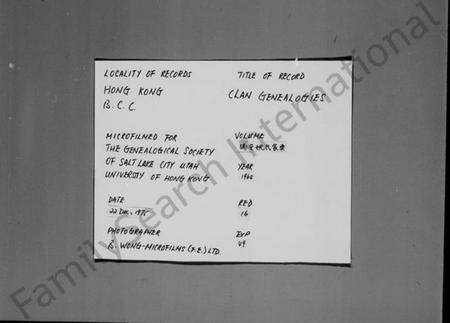 LOCALITY OF RECORDS
HONG KONG
B.C.C.
TITLE OF RECORD
CLAN GENEALOGIES
MICROFILMED FOR
THE GENEALOGICAL SOCIETY
OF SALT LAKE CITY UTAH
UNIVERSITY OF HONG KONG
VOLUME
YEAR
DATE
22 DEC. 1975
RED
16
PHOTOGRAPHER
B. WONG-MICROFILMS (F.E.) LTD.
EXP
49
FamilySearch International